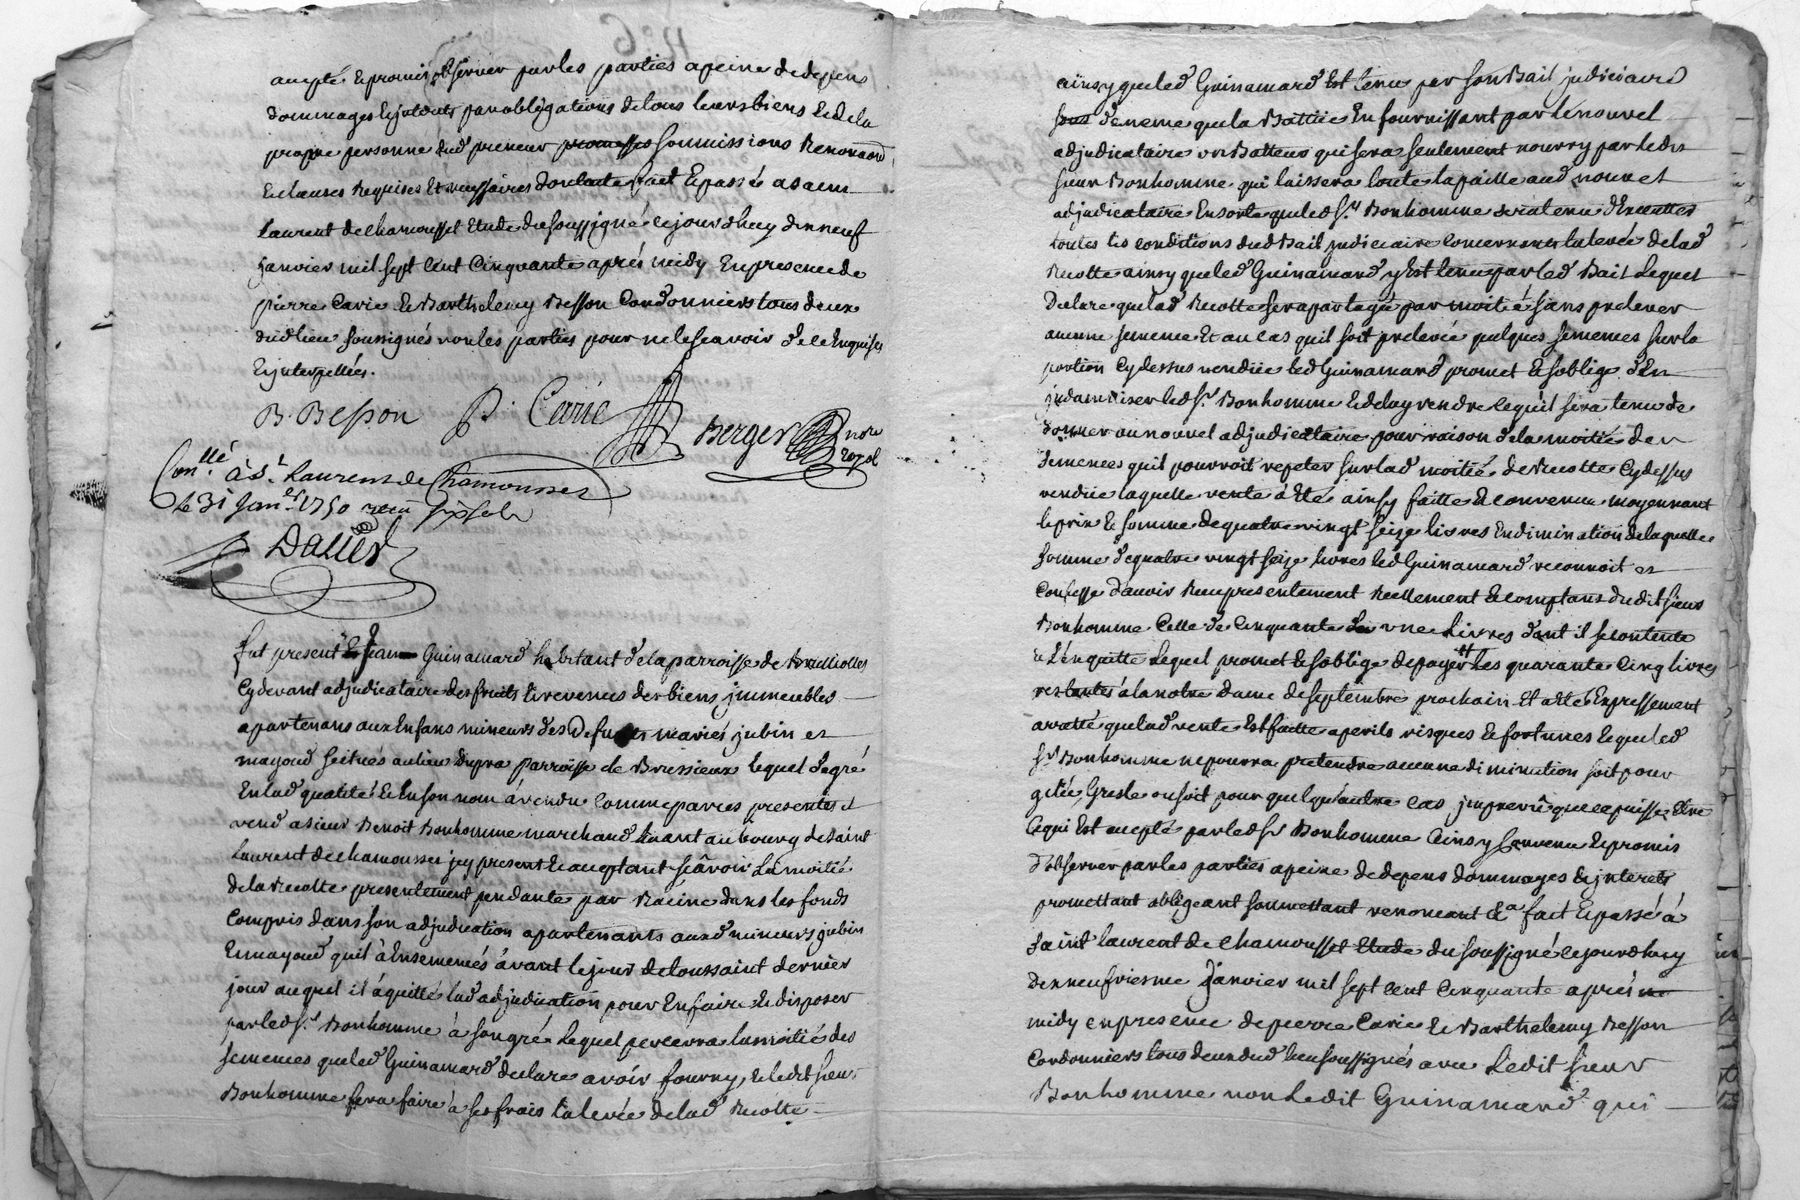 accepté & promis observer par les parties a peine de depens
dommages & interets par obligations de tous leurs biens & de la
propre personne dud preneur soumissions Renonca&on
& clauses Requises Et necessaires dont acte fait & passé a saint
laurent de chamousset Etude du soussigné cejourdhuy dixneuf
janvier mil sept cent Cinquante aprés midy En presence de
pierre Carie & Barthelemy Besson Cordonniers tous deux
dud lieu soussignés non les parties pour ne le scavoir de ce Enquises
& interpellées.
B. Besson P. Carie Berger no.re royal
Con.llé à s.t Laurent de Chamousset
le 31 Jan.er 1750 recu
Dalier
fut present Jean Guinamard habitant de la parroisse de
Cy devant adjudicataire des fruits & revenus des biens immeubles
apartenans aux Enfans mineurs des Defunts mariés jubin et
mayoud scitués au lieu parroisse de Brussieux lequel de gré
En lad qualité & En son nom à vendu comme par ces presentes il
vend a sieur Benoit Bonhomme marchand au bourg de saint
Laurent de chamousset icy present & acceptant sçavoir La moitié
de la Recolte presentement pendante par Racine dans les fonds
Compris dans son adjudication apartenants auxd mineurs jubin
Et mayoud quil à Ensemencés avant le jour de toussaint dernier
jour auquel il à quitté lad adjudication pour En faire & disposer
par led s.r Bonhomme à son gré Lequel percevra la moitié des
semences que led Guinamard declare avoir fourny, & ledit sieur
Bonhomme fera faire à ses frais la levée de lad Recolte
ainsy que led Guinamard Est tenu par son Bail judiciaire
de meme que la Battüe En fournissant par le nouvel
adjudicataire un Batteur qui sera seulement nourry par ledit
sieur Bonhomme qui laissera toute la paille aud nouvel
adjudicataire En sorte que led s.r Bonhomme sera tenu d'Executter
toutes les conditions dud Bail judiciaire concernant la levée de lad
Recotte ainsy que led Guinamard y Est tenu par led Bail Lequel
Declare que lad Recotte sera partagée par moitié sans prelever
aucune semence Et au cas quil soit prelevée quelques semences sur la
portion Cy dessus vendüe led Guinamard promet & soblige d'En
jndamniser led s.r Bonhomme & de luy rendre ce quil sera tenu de
donner au nouvel adjudicataire pour raison de la moitié des
semences quil pourroit repeter sur lad moitié de Recotte Cy dessus
vendüe laquelle vente à Eté ainsy faitte & convenue moyennant
le prix & somme de quatre vingt seize livres En diminution de laquelle
somme de quatre vingt seize livres led Guinamard reconnoit et
Confesse d'avoir Receu presentement Reellement & comptant dudit sieur
Bonhomme Celle de Cinquante une Livres dont il se contente
& L'en quitte Lequel promet & soblige de payer Les quarante Cinq livres
restantes à la notre dame de septembre prochain Et a Eté Expressement
arretté que lad vente Est faitte a perils risques & fortunes & que led
s.r Bonhomme ne pourra pretendre aucune diminution soit pour
gelée, Gresle ou soit pour quelqu'autre cas jmprevû que ce puisse Etre
Ce qui Est accepté par led s.r Bonhomme Ainsy Convenu & promis
d'observer par les parties a peine de depens dommages & jnterets
promettant obligeant soumettant renonceant &a fait & passé à
saint laurent de chamousset Etude du soussigné cejourdhuy
dixneufviesme Janvier mil sept cent Cinquante aprés
midy en presence de pierre Carie & Barthelemy Besson
Cordonniers tous deux dud lieu soussignés avec Ledit sieur
Bonhomme non Ledit Guinamard qui